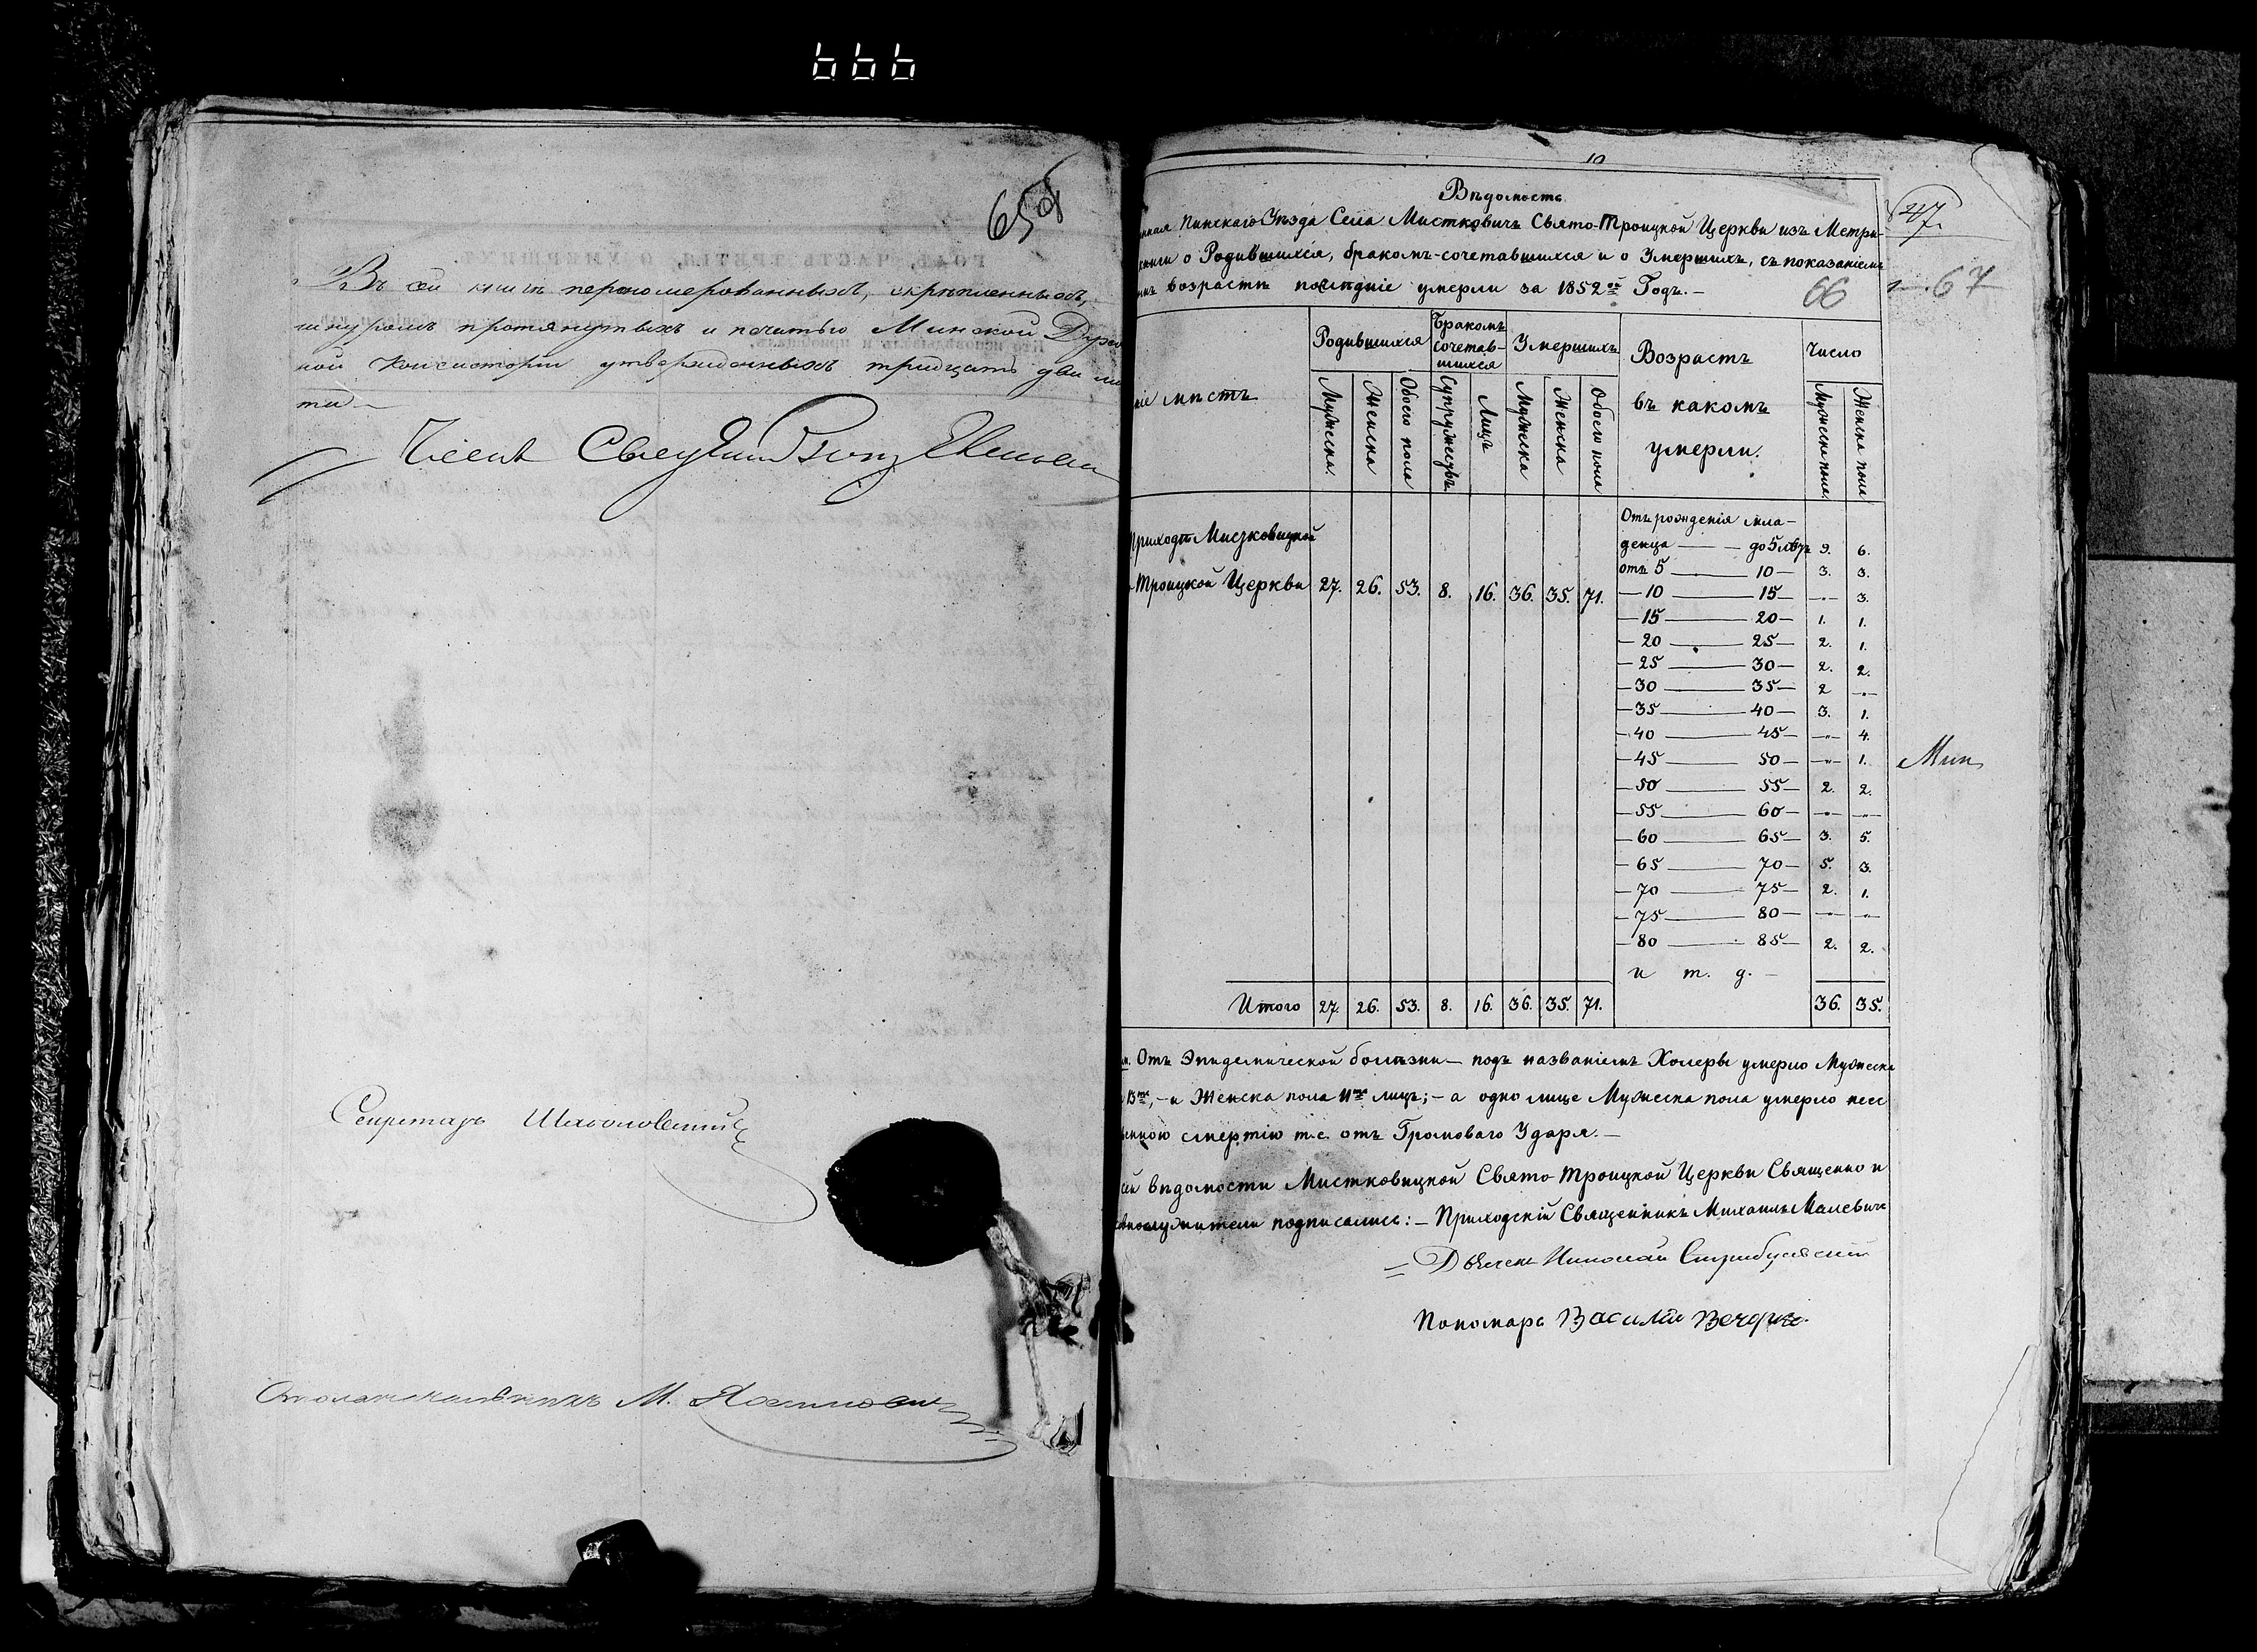 666
65 об
Въ сей книгѣ перенумерованныхъ, скрѣпленныхъ,
шнуромъ протянутыхъ и печатью Минской Духов
ной Консисторіи утвержденныхъ тридцать два лис
та
Членъ
Секретарь
Столоначальникъ М.
10
Вѣдомость
Пинскаго Уѣзда Села Мистковичъ Свято-Троицкой Церкви изъ Метри-
книги о Родившихся, бракомъ-сочетавшихся и о Умершихъ, съ показаніемъ
возрастѣ послѣдніе умерли за 1852ой Годъ.—
47
66
67
мѣстъ
Родившихся
Бракомъ сочетав-шихся
Умершихъ
Возрастъ въ какомъ умерли.
Число
Мужеска.
Женска
Обоего пола
Супружествъ.
Лицъ
Мужеска
Женска
Обоего пола
Мужеска пола.
Женска пола
Приходъ Мистковицкой
Троицкой Церкви 27. 26. 53. 8. 16. 36. 35. 71.
Отъ рожденія мла-
денца — до 5 лѣтъ 9. 6.
отъ 5 — 10 — 3. 3.
— 10 — 15 — „ — 3.
— 15 — 20 — 1. 1.
— 20 — 25 — 2. 1.
— 25 — 30 — 2. 2.
— 30 — 35 — 2 — „ —
— 35 — 40 — 3. 1.
— 40 — 45 — „ — 4.
— 45 — 50 — „ — 1.
— 50 — 55 — 2. 2.
— 55 — 60 — „ — „ —
— 60 — 65 — 3. 5.
— 65 — 70 — 5. 3.
— 70 — 75 — 2. 1.
— 75 — 80 — „ — „ —
— 80 — 85 — 2. 2.
и т. д. —
Итого 27. 26. 53. 8. 16. 36. 35. 71. 36. 35.
Мин
Отъ Эпидемической болѣзни — подъ названіемъ Холеры умерло Мужеска
13ть, — и Женска пола 11ть лицъ; — а одно лице Мужеска пола умерло
смертію т.е. отъ Громоваго Удара. —
сей вѣдомости Мистковицкой Свято Троицкой Церкви Священно и
подписались: — Приходскій Священникъ Михаилъ Малевичъ
Дьячекъ Николай
Пономарь Василій